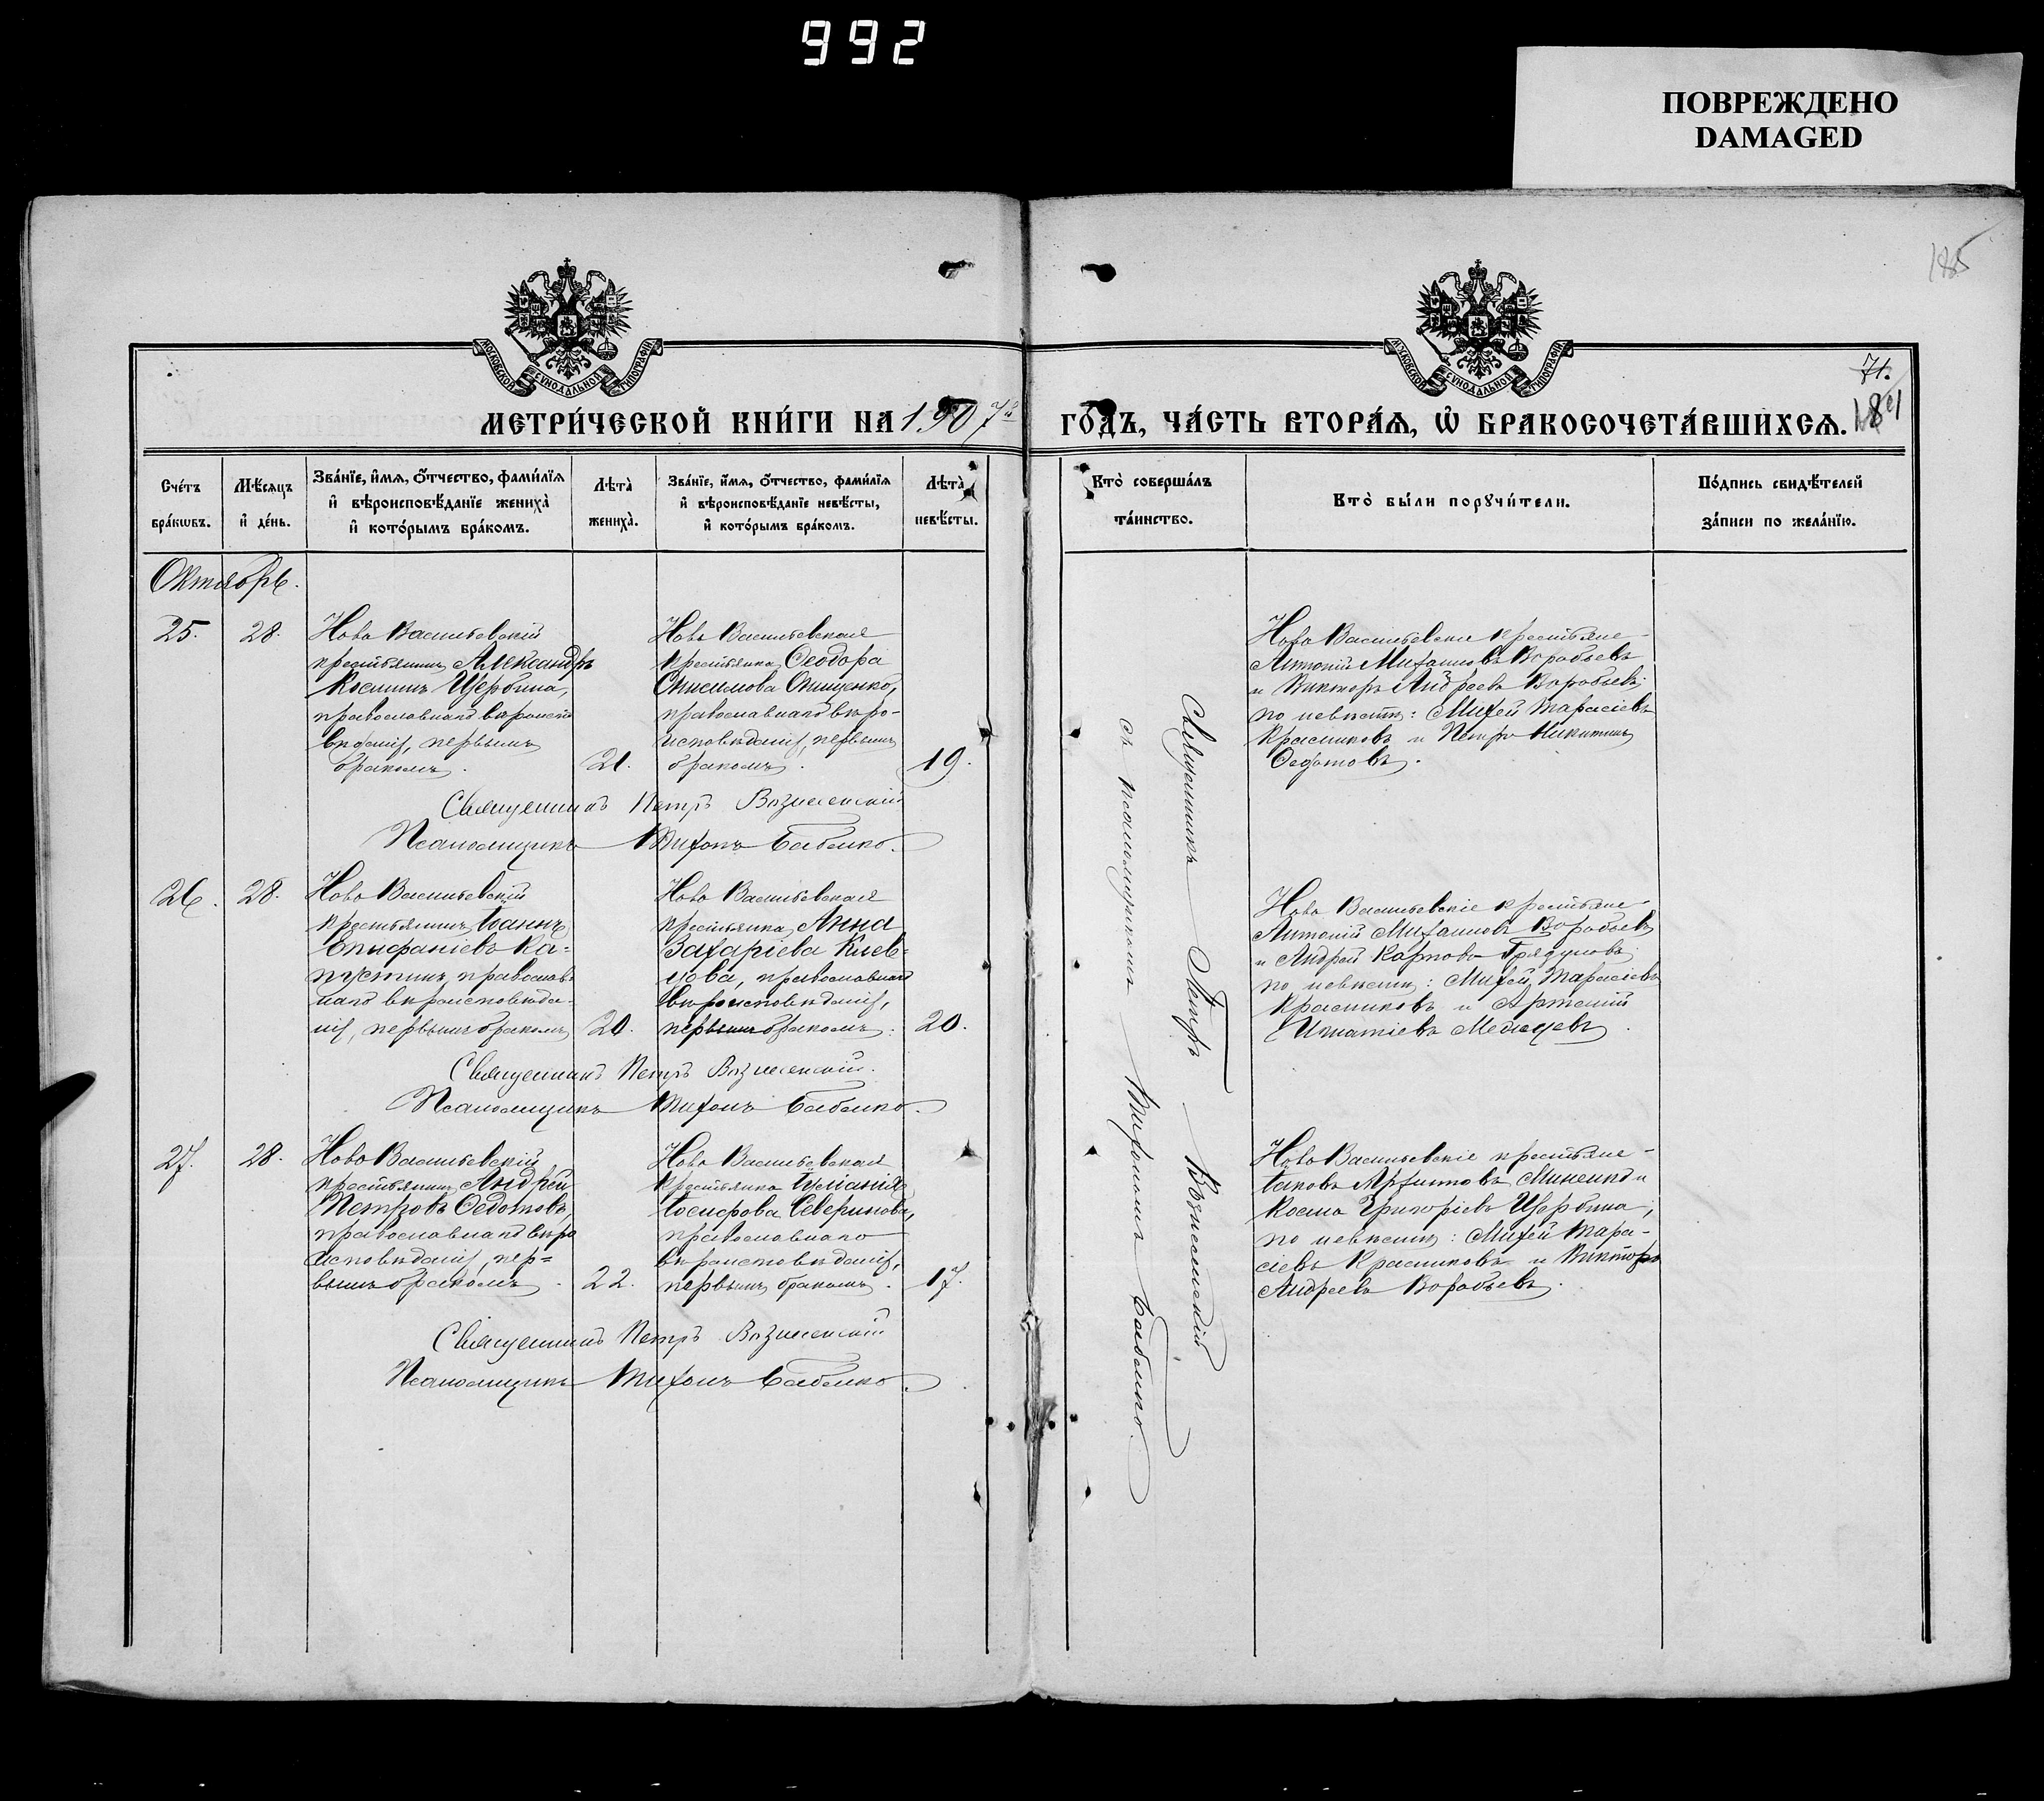 992
ПОВРЕЖДЕНО
DAMAGED
185
МОСКОВСКОЙ СѴНОДАЛЬНОЙ ТИПОГРАФІИ
МОСКОВСКОЙ СѴНОДАЛЬНОЙ ТИПОГРАФІИ
71.
МЕТРИ́ЧЕСКОЙ КНИ́ГИ НА 1907й ГО́ДЪ, ЧА́СТЬ ВТОРА́Я, Ѡ҆ БРАКОСОЧЕТА́ВШИХСЯ.
Сче́тъ бра́кѡвъ.
Мѣ́сяцъ и҆ де́нь.
Зва́нїе, и҆́мя, ѻ҆́тчество, фами́лїя
и҆ вѣроисповѣ́данїе жениха̀
и҆ кото́рымъ бра́комъ.
Лѣта̀ жениха̀.
Зва́нїе, и҆́мя, ѻ҆́тчество, фами́лїя
и҆ вѣроисповѣ́данїе невѣ́сты,
и҆ кото́рымъ бра́комъ.
Лѣта̀ невѣ́сты.
Кто̀ соверша́лъ та́инство.
Кто̀ бы́ли порꙋчи́тели.
По́дпись свидѣ́телей
за́писи по жела́нїю.
Октябрь.
25.
28.
Ново Васильевскій
крестьянинъ Александръ
Косминъ Щербина,
православнаго вѣроиспо
вѣданія, первымъ
бракомъ.
21.
Ново Васильевская
крестьянка Ѳеодора
Онисимова Онищенко,
православнаго вѣро-
исповѣданія, первымъ
бракомъ.
19.
Ново Васильевскіе крестьяне
Антоній Михаиловъ Воробьевъ
и Викторъ Андреевъ Воробьевъ;
по невѣстѣ: Михей Тарасіевъ
Красниковъ и Петръ Никитинъ
Ѳедотовъ.
Священникъ Петръ Вознесенскій
Псаломщикъ Тихонъ Бабенко.
26.
28.
Ново Васильевскій
крестьянинъ Іоаннъ
Епифаніевъ Ка-
пустинъ, православ
наго вѣроисповѣда-
нія, первымъ бракомъ
20.
Ново Васильевская
крестьянка Анна
Захаріева Клев-
цова, православнаго
вѣроисповѣданія,
первымъ бракомъ.
20.
Ново Васильевскіе крестьяне
Антоній Михаиловъ Воробьевъ
и Андрей Карповъ Грядуновъ;
по невѣстѣ: Михей Тарасіевъ
Красниковъ и Артемій
Игнатіевъ
Священникъ Петръ Вознесенскій.
Псаломщикъ Тихонъ Бабенко.
27.
28.
Ново Васильевскій
крестьянинъ Андрей
Петровъ Ѳедотовъ,
православнаго вѣро
исповѣданія, пер-
вымъ бракомъ.
22.
Ново Васильевская
крестьянка Іуліанія
Іосифова Северинова,
православнаго
вѣроисповѣданія,
первымъ бракомъ.
17.
Ново Васильевскіе крестьяне
Іаковъ Архиповъ Миненко и
Косма Григорієвъ Щербина;
по невѣстѣ: Михей Тара-
сіевъ Красниковъ и Викторъ
Андреевъ Воробьевъ.
Священникъ Петръ Вознесенскій
Псаломщикъ Тихонъ Бабенко.
Священникъ Петръ Вознесенскій
съ псаломщикомъ Тихономъ Бабенко.